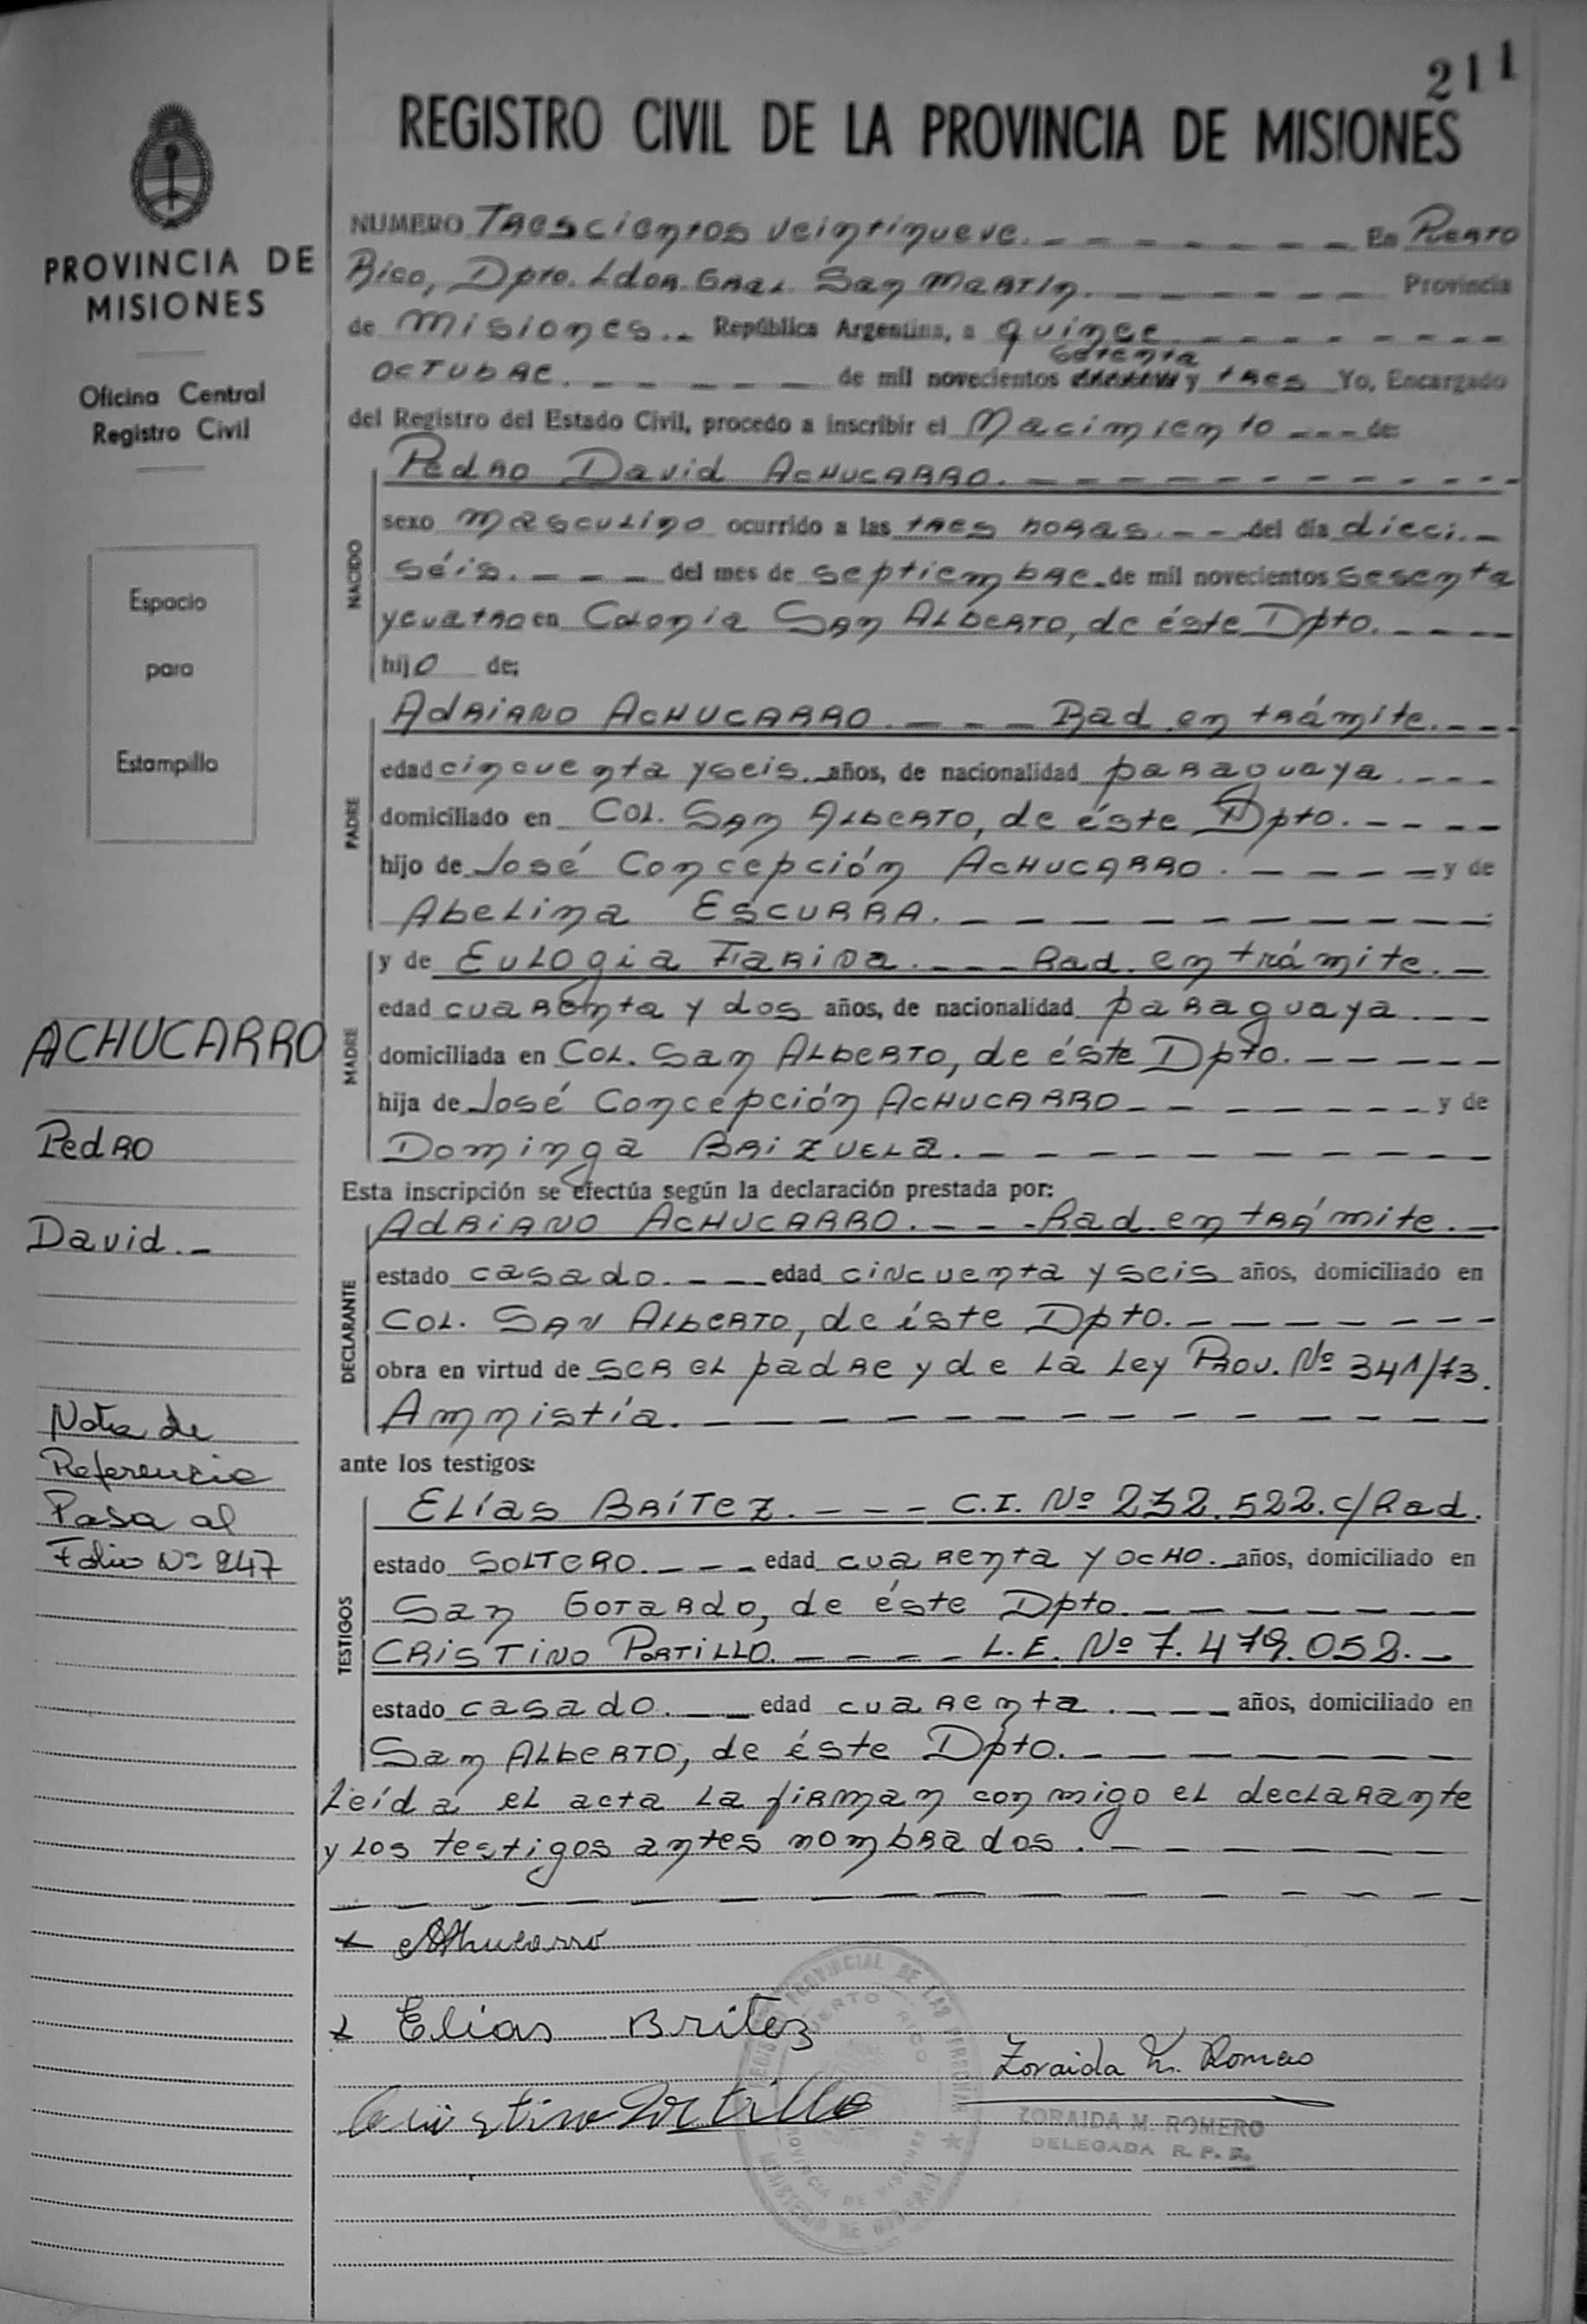 211
REGISTRO CIVIL DE LA PROVINCIA DE MISIONES
PROVINCIA DE
MISIONES
Oficina Central
Registro Civil
Espacio
para
Estampilla
ACHUCARRO
Pedro
David.-
Nota de
Referencia
Pasa al
Folio Nº 247
NUMERO Trescientos veintinueve. - - - - - - - En Puerto
Rico, Dpto. Ldor. Gral. San Martín. - - - - - - Provincia
de Misiones.- República Argentina, a quince - - - - - - - -
setenta
octubre. - - - - - - de mil novecientos y tres Yo, Encargado
del Registro del Estado Civil, procedo a inscribir el Nacimiento - - - de:
NACIDO
Pedro David ACHUCARRO. - - - - - - - - - - - -
sexo masculino ocurrido a las tres horas. - - del día dieci.-
séis. - - - del mes de septiembre. de mil novecientos sesenta
y cuatro en Colonia San Alberto, de éste Dpto. - - - -
hijo de;
PADRE
Adriano ACHUCARRO. - - - Rad. en trámite. - - -
edad cincuenta y seis. años, de nacionalidad paraguaya. - - -
domiciliado en Col. San Alberto, de éste Dpto. - - - -
hijo de José Concepción ACHUCARRO. - - - - y de
Abelina ESCURRA. - - - - - - - - - - -
MADRE
y de Eulogia Fariña. - - - Rad. en trámite. -
edad cuarenta y dos años, de nacionalidad paraguaya. - -
domiciliada en Col. San Alberto, de éste Dpto. - - - - -
hija de José Concepción ACHUCARRO - - - - - - - y de
Dominga Brizuela. - - - - - - - - - - -
Esta inscripción se efectúa según la declaración prestada por:
DECLARANTE
Adriano ACHUCARRO. - - - Rad. en trámite. -
estado casado. - - - edad cincuenta y seis años, domiciliado en
Col. San Alberto, de éste Dpto. - - - - - - -
obra en virtud de ser el padre y de la Ley Prov. Nº 341/73.
Amnistía. - - - - - - - - - - - - - -
ante los testigos:
TESTIGOS
Elías Brítez. - - - C.I. Nº 232.522. c/Rad.
estado soltero. - - - edad cuarenta y ocho. años, domiciliado en
San Gotardo, de éste Dpto. - - - - - - -
Cristino Portillo. - - - - L.E. Nº 7.479.052. -
estado casado. - - edad cuarenta. - - - años, domiciliado en
San Alberto, de éste Dpto. - - - - - - - -
Leída el acta la firman conmigo el declarante
y los testigos antes nombrados. - - - - - -
x AAchucarro
x Elias Britez
Cristino Portillo
Zoraida M. Romero
ZORAIDA M. ROMERO
DELEGADA R. P. P.
REGISTRO PROVINCIAL DE LAS PERSONAS
PUERTO RICO
PROVINCIA DE MISIONES
MINISTERIO DE GOBIERNO